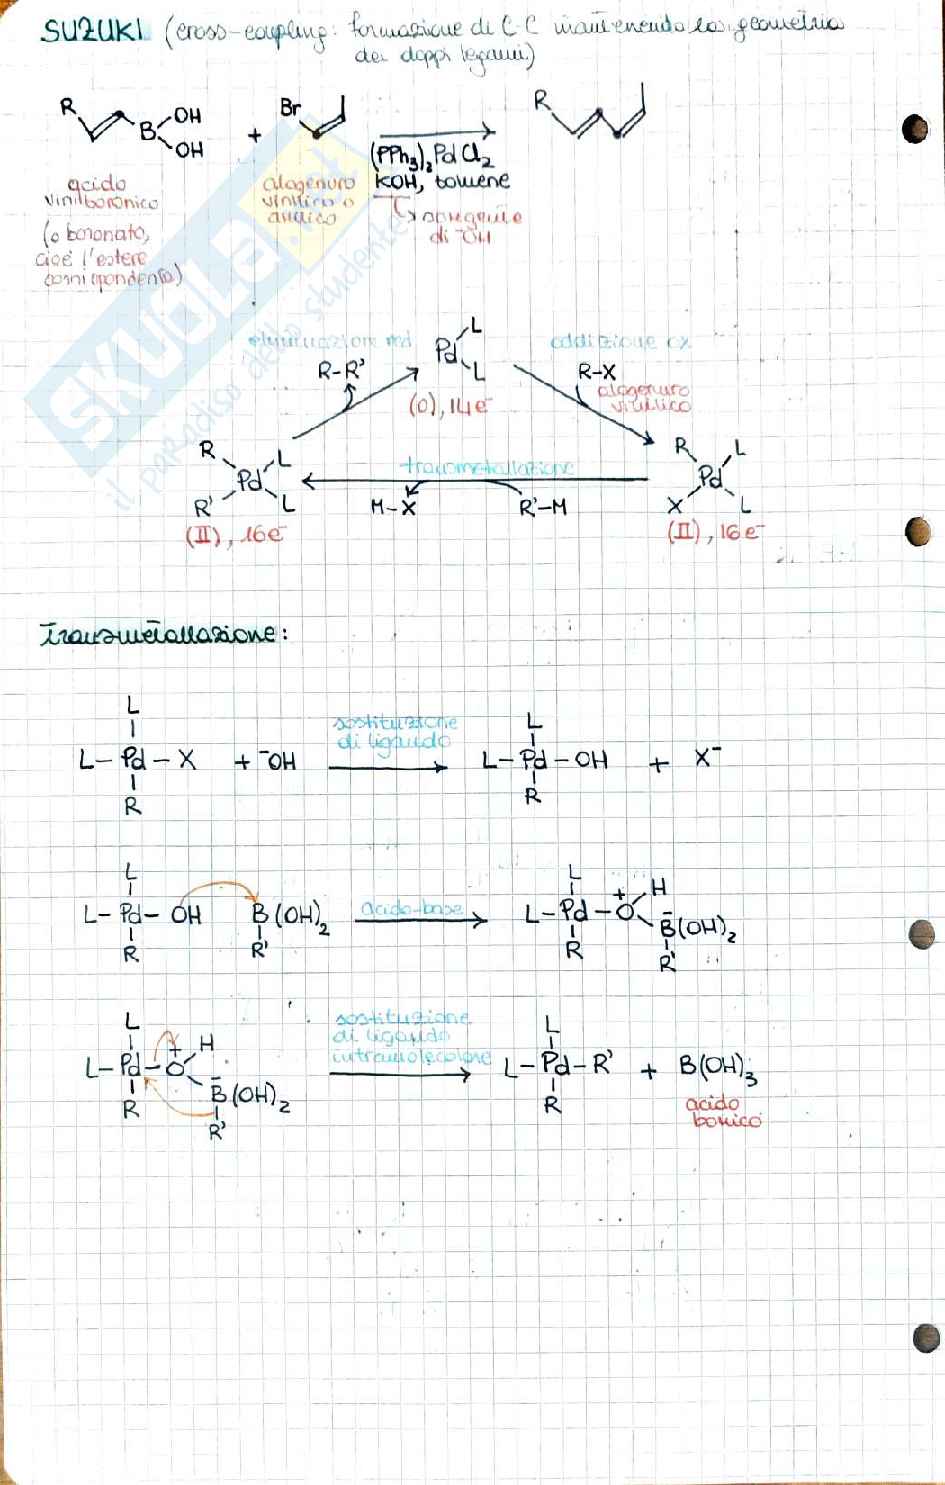 SUZUKI (cross-coupling: formazione di C-C mantenendo la geometria
dei doppi legami)
R
B
OH
OH
+
Br
(PPh₃)₂PdCl₂
KOH, toluene
R
acido
vinilboronico
(o boronato,
cioè l'estere
corrispondente)
alogenuro
vinilico o
arilico
sorgente
di ⁻OH
SKUOLA.net
il paradiso dello studente
eliminazione rid
Pd
L
L
addizione ox
R-R'
(0), 14e⁻
R-X
alogenuro
vinilico
R
R'
Pd
L
L
transmetallazione
R
X
Pd
L
L
M-X
R'-M
(II), 16e⁻
(II), 16e⁻
Transmetallazione:
L
L-Pd-X + ⁻OH
R
sostituzione
di ligando
L
L-Pd-OH + X⁻
R
L
L-Pd-OH B(OH)₂
R R'
acido-base
L
L-Pd-O⁺ H
B⁻(OH)₂
R R'
L
L-Pd-O⁺ H
B⁻(OH)₂
R R'
sostituzione
di ligando
intramolecolare
L
L-Pd-R' + B(OH)₃
R
acido
borico